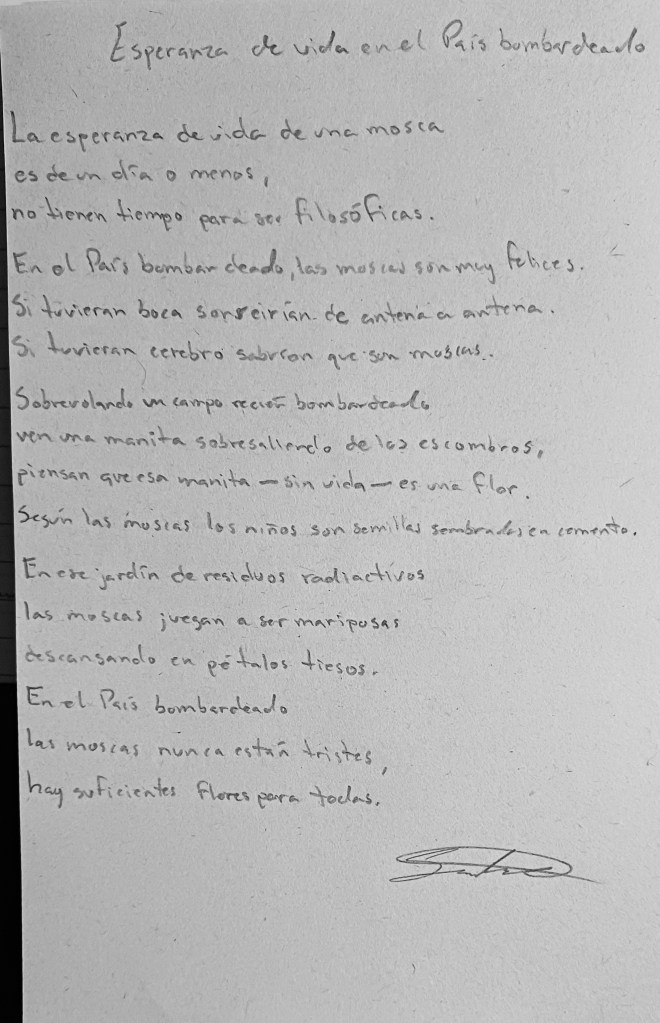 Esperanza de vida en el País bombardeado
La esperanza de vida de una mosca
es de un día o menos,
no tienen tiempo para ser filosóficas.
En el País bombardeado, las moscas son muy felices.
Si tuvieran boca sonreirían de antena a antena.
Si tuvieran cerebro sabrían que son moscas.
Sobrevolando un campo recién bombardeado
ven una manita sobresaliendo de los escombros,
piensan que esa manita — sin vida — es una flor.
Según las moscas los niños son semillas sembradas en cemento.
En ese jardín de residuos radiactivos
las moscas juegan a ser mariposas
descansando en pétalos tiesos.
En el País bombardeado
las moscas nunca están tristes,
hay suficientes flores para todas.